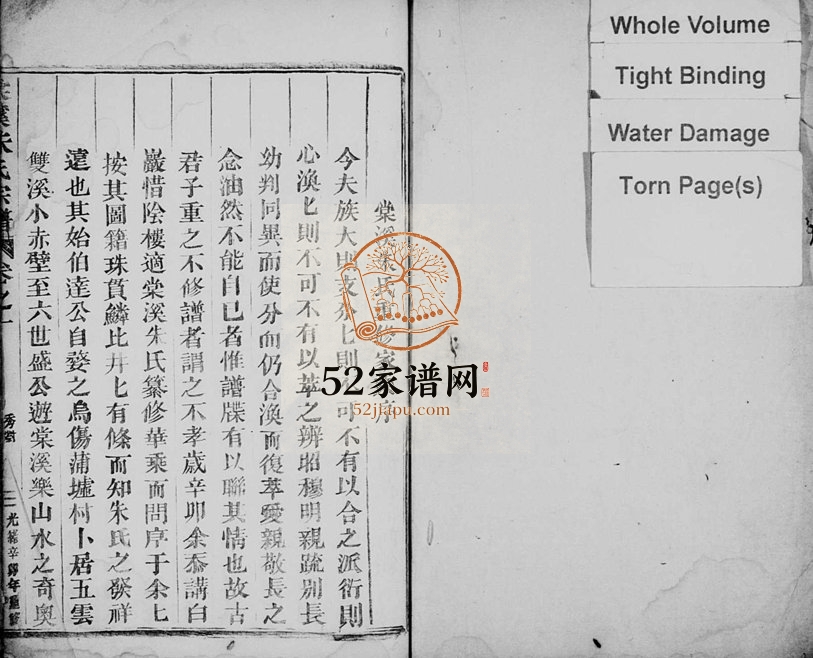 棠溪朱氏重修家 序
今夫族大則支分匕則 可不有以合之派衍則
心渙匕則不可不有以萃之辨昭穆明親疏别長
幼判同異而使分而仍合渙而復萃愛親敬長之
念油然不能自已者惟譜牒有以聯其情也故古
君子重之不修譜者謂之不孝歲辛卯余忝講白
巖惜陰樓適棠溪朱氏纂修華乘而問序于余匕
按其圖籍珠貫鱗比井匕有條而知朱氏之發祥
遠也其始伯達公自婺之烏傷蒲墟村卜居五雲
雙溪小赤壁至六世盛公遊棠溪樂山水之奇奧
棠溪朱氏宗譜 卷之一
光緒辛卯年重修
Whole Volume
Tight Binding
Water Damage
Torn Page(s)
52家谱网
52jiapu.com